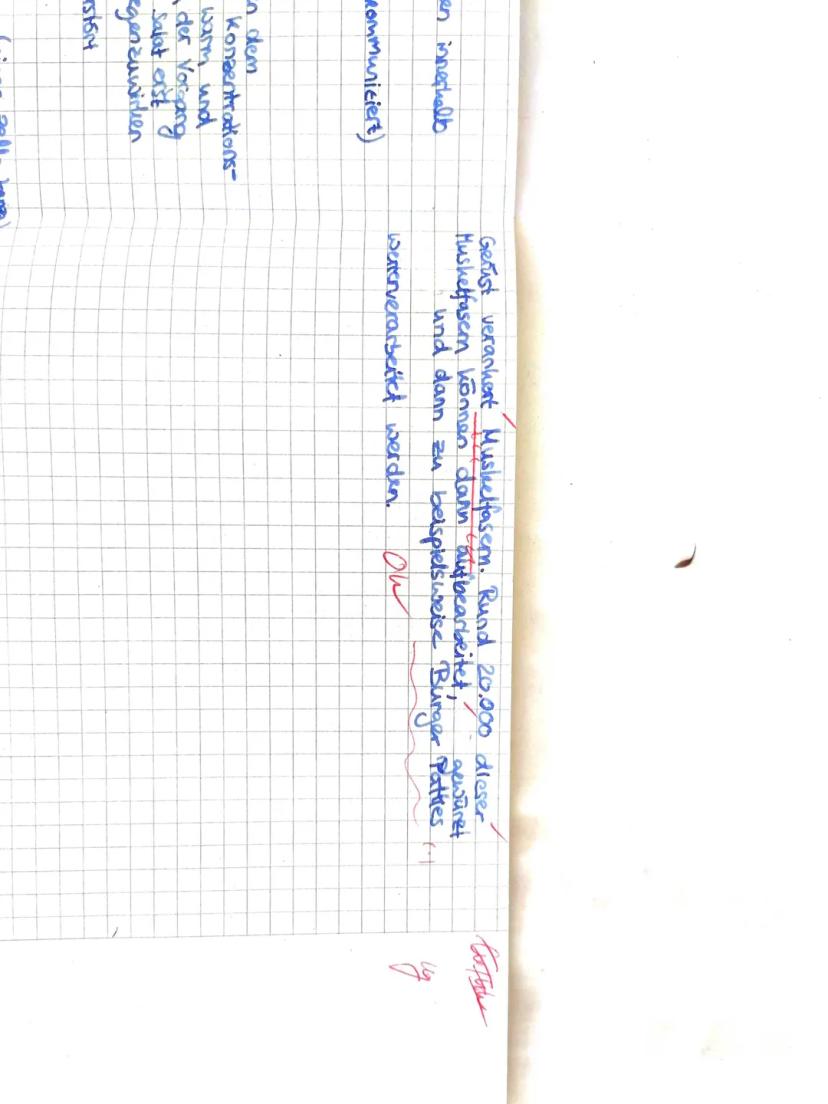 en innerhalb
kommuniciert)
n dem
Konzentrations-
warm, und
der Vorgang
Salat erst
egenzuwirken
rstört
Gerüst verankert Muskelfasern. Rund 20.000 dieser
Muskelfasern können dann aufbearbeitet, gewürzt
und dann zu beispielsweise Burger Patties
weiterverarbeitet werden. Oh
(-)